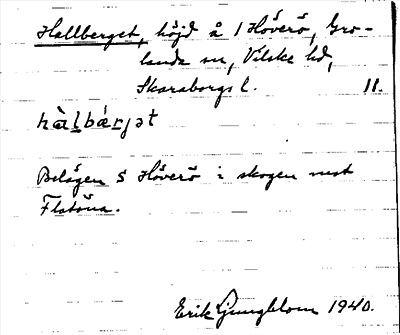 Hallberget, höjd å 1 Höverö, Gro-
landa sn, Vilske hd,
Skaraborgs l. 11.
hàlbærjət
Belägen S Höverö i skogen mot
Flatöna.
Erik Ljungblom 1940.